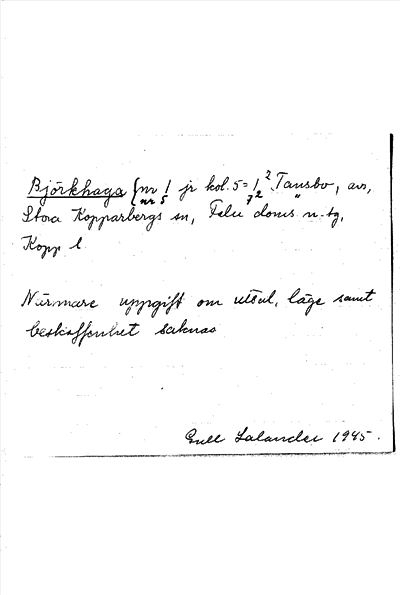 Björkhaga {nr 1 jr kol. 5 = 1 2 Tansbo, avs,
nr 5 72 "
Stora Kopparbergs sn, Falu doms. n. tg,
Kopp l
Närmare uppgift om utsul, läge samt
beskaffenhet saknas
Gull Salander 1945.